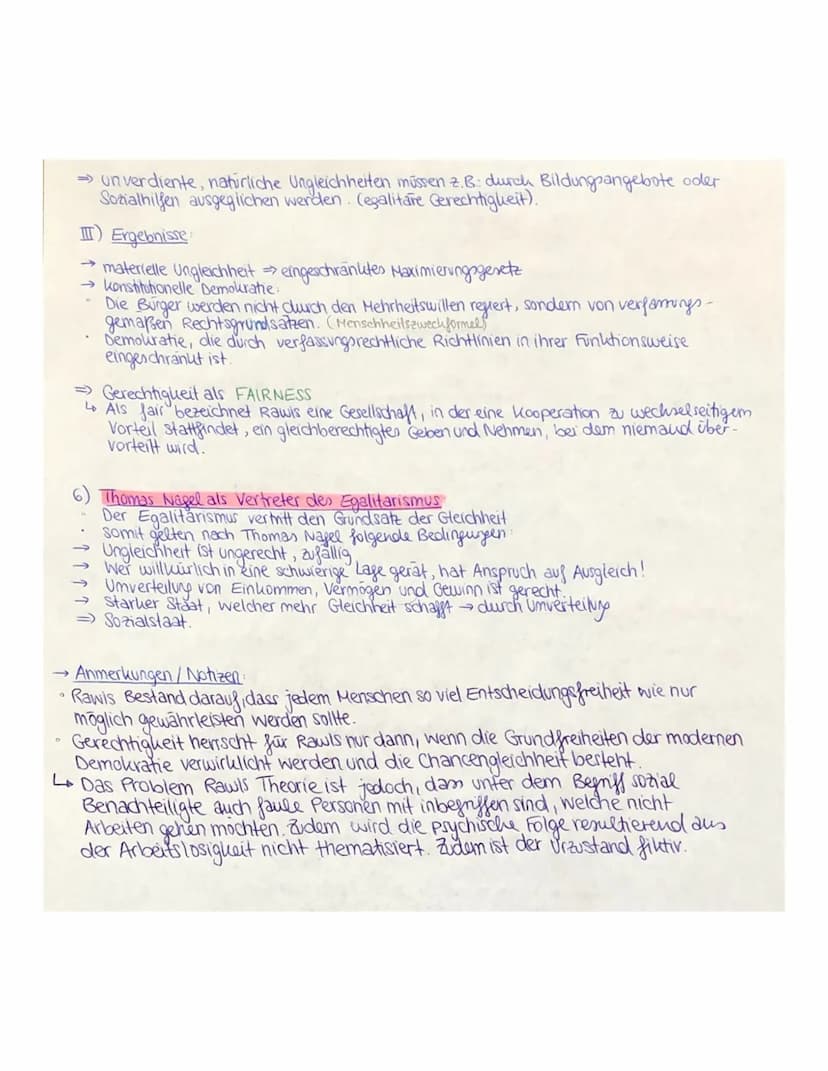 ⇒ unverdiente, natürliche Ungleichheiten müssen z.B.: durch Bildungsangebote oder
Sozialhilfen ausgeglichen werden. (egalitäre Gerechtigkeit).
III) Ergebnisse:
→ materielle Ungleichheit ⇒ eingeschränktes Maximierungsgesetz
→ konstitutionelle Demokratie:
· Die Bürger werden nicht durch den Mehrheitswillen regiert, sondern von verfassungs-
gemäßen Rechtsgrundsätzen. (Menschheitszweckformel)
· Demokratie, die durch verfassungsrechtliche Richtlinien in ihrer Funktionsweise
eingeschränkt ist.
⇒ Gerechtigkeit als FAIRNESS
↳ Als "fair" bezeichnet Rawls eine Gesellschaft, in der eine Kooperation zu wechselseitigem
Vorteil stattfindet, ein gleichberechtigtes Geben und Nehmen, bei dem niemand über-
vorteilt wird.
6) Thomas Nagel als Vertreter des Egalitarismus
· Der Egalitarismus vertritt den Grundsatz der Gleichheit
· somit gelten nach Thomas Nagel folgende Bedingungen:
→ Ungleichheit ist ungerecht, zufällig
→ Wer willkürlich in eine schwierige Lage gerät, hat Anspruch auf Ausgleich!
→ Umverteilung von Einkommen, Vermögen und Gewinn ist gerecht.
→ Starker Staat, welcher mehr Gleichheit schafft → durch Umverteilung
⇒ Sozialstaat.
→ Anmerkungen / Notizen:
° Rawls Bestand darauf, dass jedem Menschen so viel Entscheidungsfreiheit wie nur
möglich gewährleisten werden sollte.
° Gerechtigkeit herrscht für Rawls nur dann, wenn die Grundfreiheiten der modernen
Demokratie verwirklicht werden und die Chancengleichheit besteht.
↳ Das Problem Rawls Theorie ist jedoch, dass unter dem Begriff sozial
Benachteiligte auch faule Personen mit inbegriffen sind, welche nicht
Arbeiten gehen möchten. Zudem wird die psychische Folge resultierend aus
der Arbeitslosigkeit nicht thematisiert. Zudem ist der Urzustand fiktiv.